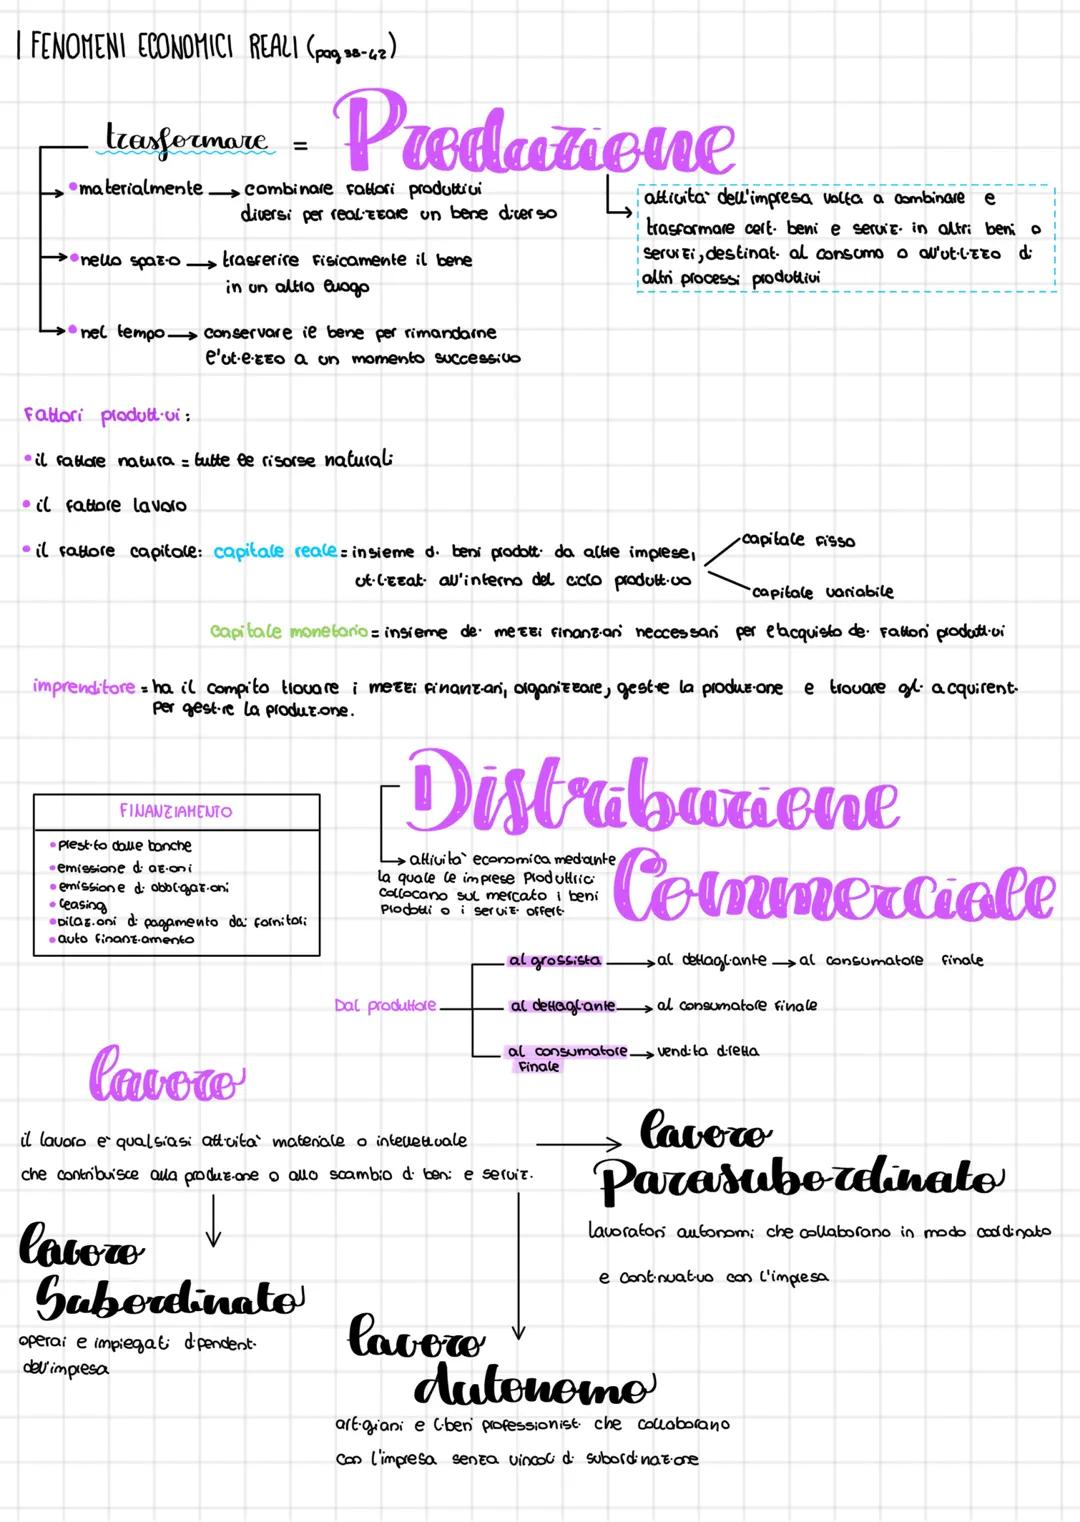 I FENOMENI ECONOMICI REALI (pag 38-42)
trasformare = Produzione
materialmente → combinare fattori produttivi
diversi per realizzare un bene diverso
nello spazio → trasferire fisicamente il bene
in un altro luogo
nel tempo → conservare il bene per rimandarne
l'utilizzo a un momento successivo
attività dell'impresa volta a combinare e
trasformare certi beni e servizi in altri beni o
servizi, destinati al consumo o all'utilizzo di
altri processi produttivi
Fattori produttivi:
il fattore natura = tutte le risorse naturali
il fattore lavoro
il fattore capitale: capitale reale = insieme di beni prodotti da altre imprese,
utilizzati all'interno del ciclo produttivo
capitale fisso
capitale variabile
capitale monetario = insieme dei mezzi finanziari neccessari per l'acquisto dei fattori produttivi
imprenditore = ha il compito trovare i mezzi finanziari, organizzare, gestire la produzione e trovare gli acquirenti
per gestire la produzione.
Distribuzione
Commerciale
FINANZIAMENTO
prestito dalle banche
emissione di azioni
emissione di obbligazioni
leasing
dilazioni di pagamento dai fornitori
auto finanziamento
→ attività economica mediante
la quale le imprese produttrici
collocano sul mercato i beni
prodotti o i servizi offerti
Dal produttore
al grossista → al dettagliante → al consumatore finale
al dettagliante → al consumatore finale
al consumatore → vendita diretta
finale
lavoro
il lavoro è qualsiasi attività materiale o intellettuale
che contribuisce alla produzione o allo scambio di beni e servizi.
lavoro
Parasubordinato
lavoratori autonomi che collaborano in modo coordinato
e continuativo con l'impresa
lavoro
Subordinato
operai e impiegati dipendenti
dell'impresa
lavoro
Autonomo
artigiani e liberi professionisti che collaborano
con l'impresa senza vincoli di subordinazione